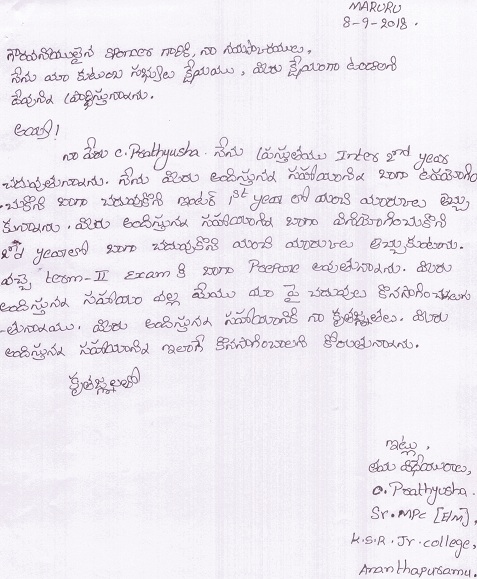 MARURU
8-9-2018.
గౌరవనీయులైన sponcer గారికి, నా నమస్కారములు,
నేను మా కుటుంబ సభ్యులు క్షేమము, మీరు క్షేమంగా ఉండాలని
దేవునిని ప్రార్థిస్తున్నాను.
అయ్యా!
నా పేరు C. Prathyusha. నేను ప్రస్తుతము Inter 2nd year
చదువుతున్నాను. నేను మీరు అందిస్తున్న సహాయాన్ని బాగా ఉపయోగిం
-చుకొని బాగా చదువుకొని ఇంటర్ 1st year లో మంచి మార్కులు తెచ్చు
కున్నాను. మీరు అందిస్తున్న సహాయాన్ని బాగా వినియోగించుకొని
2nd yearలో బాగా చదువుకొని మంచి మార్కులు తెచ్చుకుంటాను.
వచ్చే term-II Exam కి బాగా Prepare అవుతున్నాను. మీరు
అందిస్తున్న సహాయం వల్ల మేము మా పై చదువులు కొనసాగించగలుగు
-తున్నాము. మీరు అందిస్తున్న సహాయానికి నా కృతజ్ఞతలు. మీరు
అందిస్తున్న సహాయాన్ని ఇలాగే కొనసాగించాలని కోరుతున్నాను.
కృతజ్ఞతలతో
ఇట్లు,
తమ విధేయురాలు,
C. Prathyusha.
Sr. MPC [E/M],
K.S.R. Jr. college,
Ananthapuramu.